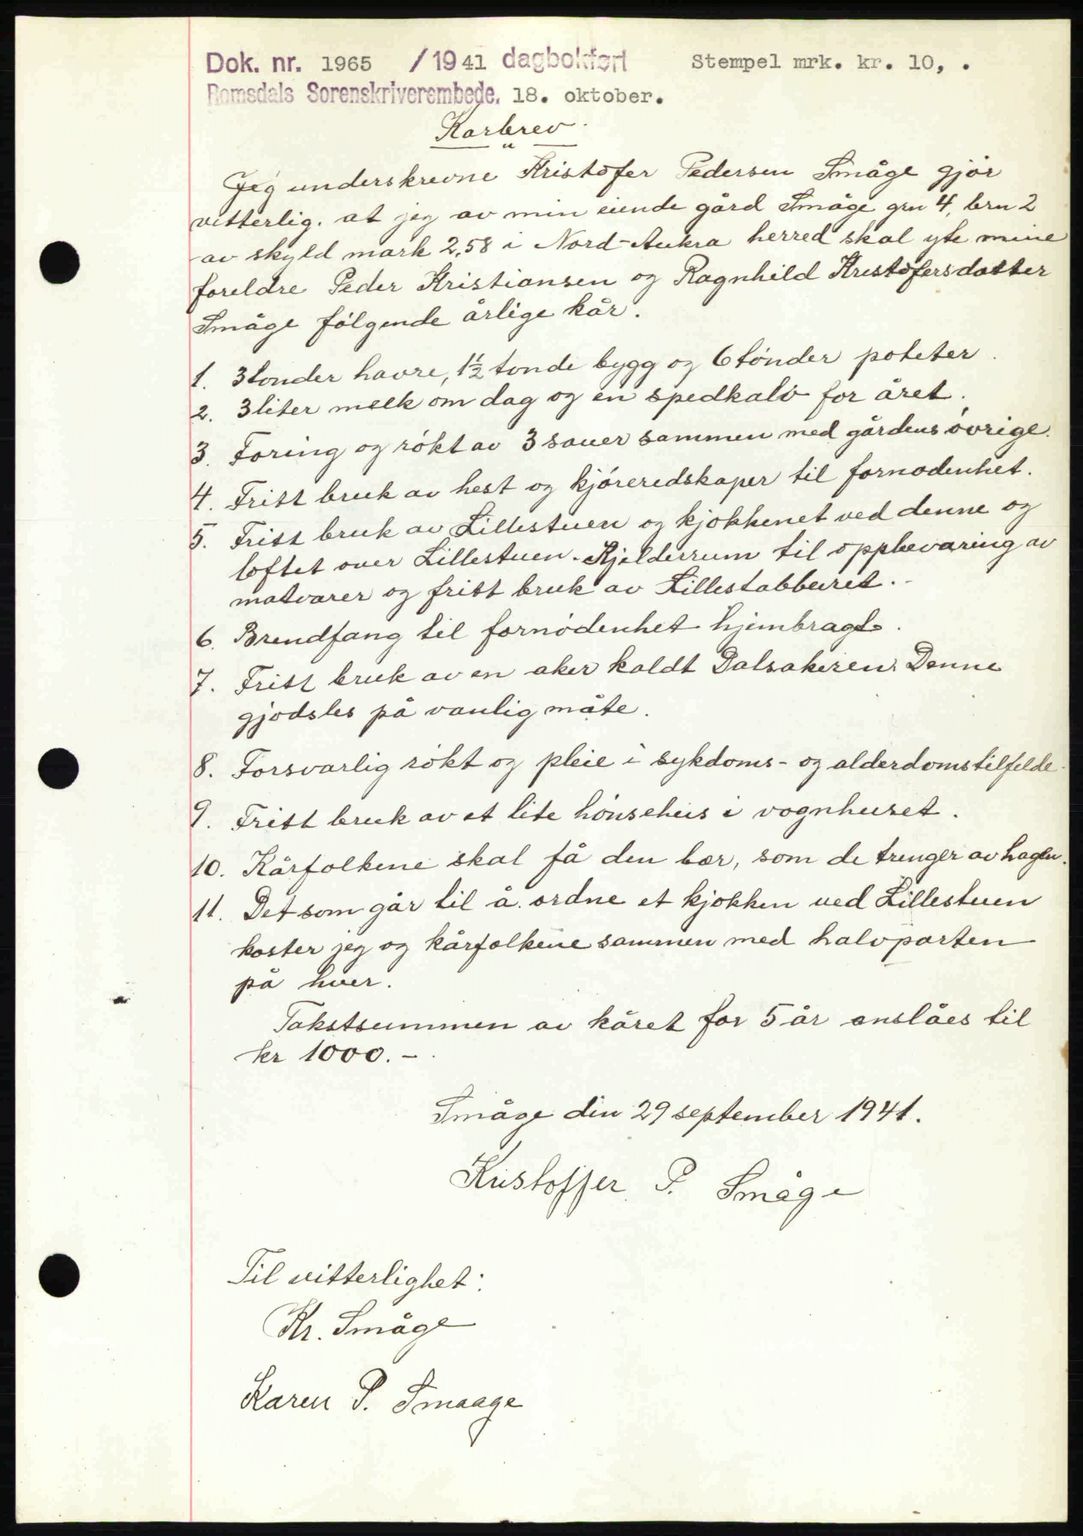 Dok. nr. 1965 /1941 dagbokført Stempel mrk. kr. 10, .
Romsdals Sorenskriverembede. 18. oktober.
Karbrev
Jeg underskrevne Kristofer Pedersen Småge gjör
vitterlig. at jeg av min eiende gård Småge grn 4, brn 2
av skyld mark 2,58 i Nord-Aukra herred skal yte mine
foreldre Peder Kristiansen og Ragnhild Kristofersdatter
Småge følgende årlige kår.
1. 3 tonder havre, 1½ tonde bygg og 6 tönder poteter.
2. 3 liter melk om dag og en spedkalv for året.
3. Foring og rökt av 3 sauer sammen med gårdens övrige.
4. Fritt bruk av hest og kjöreredskaper til fornodenhet.
5. Fritt bruk av Lillestuen og kjokkenet ved denne og
loftet over Lillestuen. Kjelderrum til oppbevaring av
matvarer og fritt bruk av Lillestabburet. -
6. Brendfang til fornödenhet hjembragt.
7. Fritt bruk av en aker kaldt Dalsakeren. Denne
gjodsles på vanlig måte.
8. Forsvarlig rökt og pleie i sykdoms- og alderdomstilfelde.
9. Fritt bruk av et lite hönsehus i vognhuset.
10. Kårfolkene skal få den bær, som de trenger av hagen.
11. Det som går til å ordne et kjokken ved Lillestuen
koster jeg og kårfolkene sammen med halvparten
på hver.
Takstsummen av kåret for 5 år anslåes til
kr 1000. -
Småge den 29 september 1941.
Kristoffer P. Småge
Til vitterlighet:
Kr. Småge
Karen P. Smaage